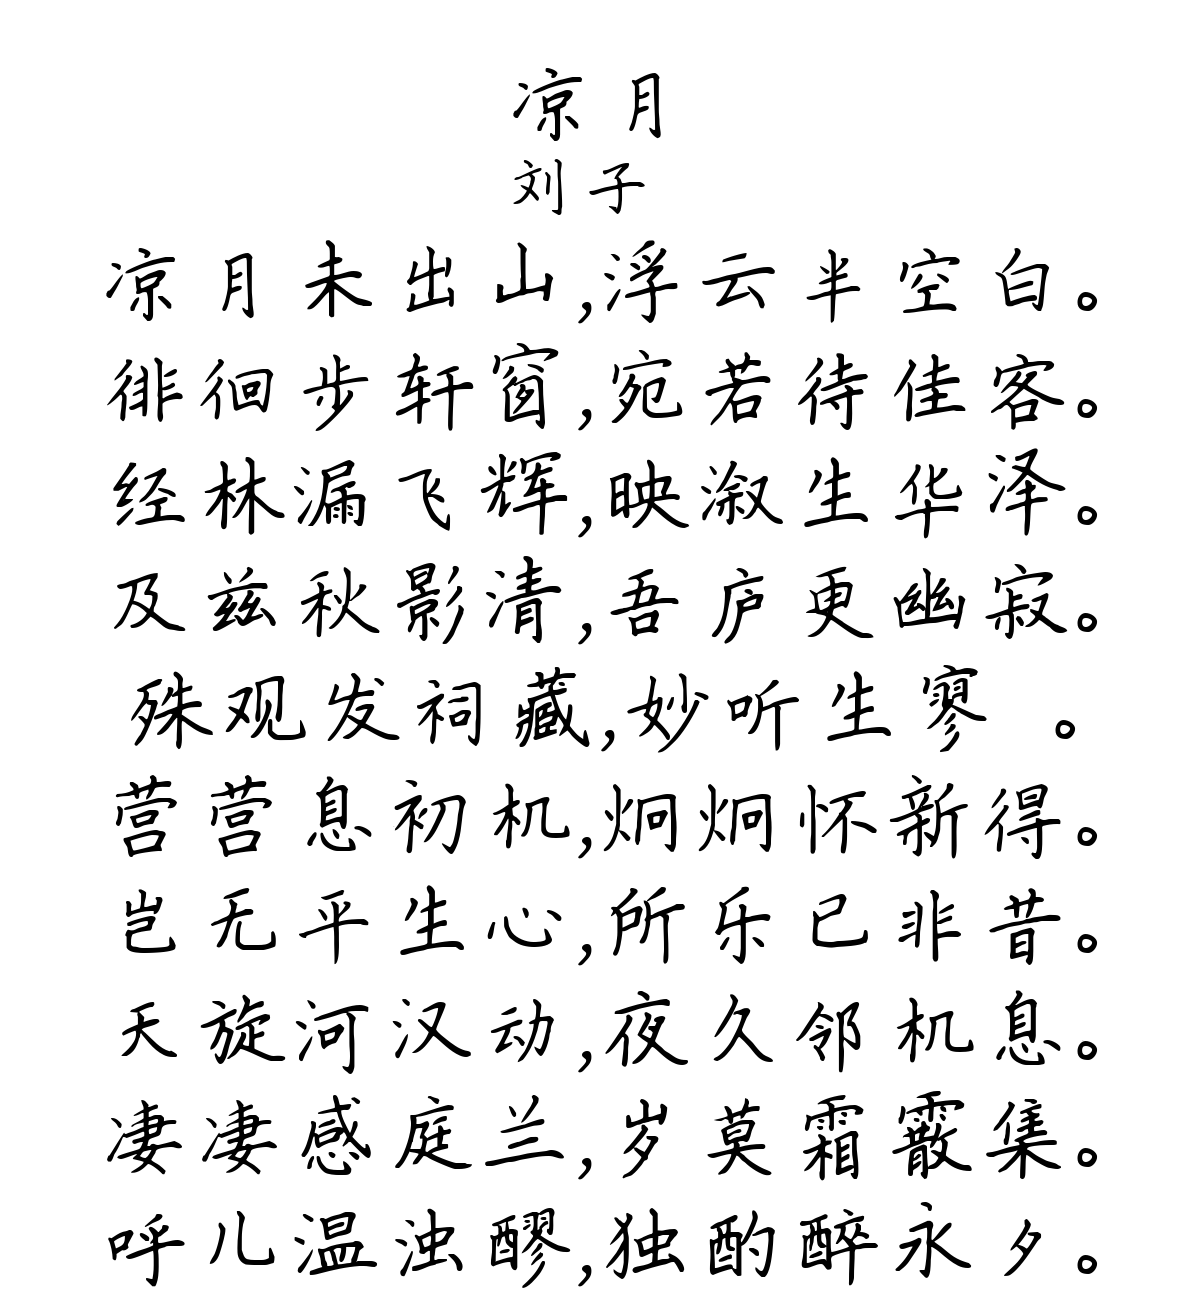 凉月
刘子
凉月未出山,浮云半空白。
徘徊步轩窗,宛若待佳客。
经林漏飞辉,映溆生华泽。
及兹秋影清,吾庐更幽寂。
殊观发祠藏,妙听生寥 。
营营息初机,炯炯怀新得。
岂无平生心,所乐已非昔。
天旋河汉动,夜久邻机息。
凄凄感庭兰,岁莫霜霰集。
呼儿温浊醪,独酌醉永夕。